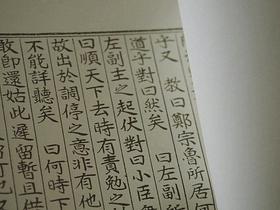 乎又　教曰鄭宗魯所居何
道乎對曰然矣　曰左副
左副主之起伏對曰小臣
曰順天下去時有責勉之
故出於調停之意非有他
不能詳聽矣　曰何時下
教卽還姑此遲留暫且供